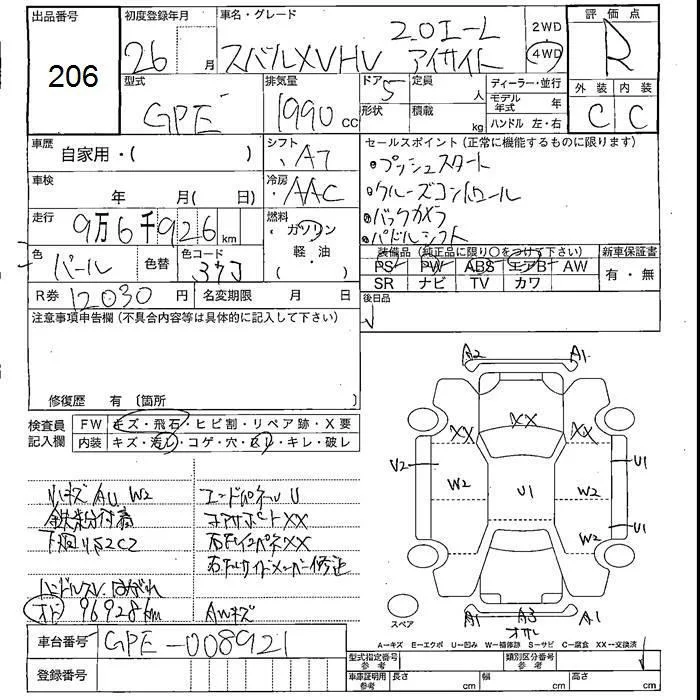 出品番号 初度登録年月 車名・グレード 評価点
206 26 月 スバルXVHV 2.0i-L アイサイト 2WD 4WD R
型式 排気量 ドア 定員 ディーラー・並行 外装 内装
GPE 1990 cc 5 人 モデル年式 年 C C
形状 積載 kg ハンドル 左・右
車歴 自家用・( ) シフト ・A7 セールスポイント(正常に機能するものに限ります)
・プッシュスタート
車検 年 月( 日) 冷房 ・AAC ・クルーズコントロール
走行 9万6千926km 燃料 ・ガソリン ・バックカメラ
・軽油 ・パドルシフト
・( )
色 パール 色替 色コード 37J 装備品(純正品に限り○をつけて下さい) 新車保証書
PS PW ABS エアB AW 有・無
R券 12030円 名変期限 月 日 SR ナビ TV カワ
注意事項申告欄(不具合内容等は具体的に記入して下さい) 後日品
修復歴 有 〔箇所 〕
A2 A1
検査員記入欄 FW キズ・飛石・ヒビ割・リペア跡・X要
内装 キズ・汚レ・コゲ・穴・スレ・キレ・破レ
XX
XX XX
V2 U1
W2 U1 W2
W2 U1
小キズ AU W2 エンドパネル U
鉄粉付着 コアサポートXX
下廻りS2C2 右左インパネXX
右左サイドメンバー修正
ハンドルスレ はがれ
オド 96928km AWキズ
スペア A1 A3 A1
車台番号 GPE-008921
A=キズ E=エクボ U=凹み W=補修跡 S=サビ C=腐食 XX=交換済
登録番号 型式指定番号 参考 類別区分番号 参考
車庫証明用参考 長さ cm 幅 cm 高さ cm